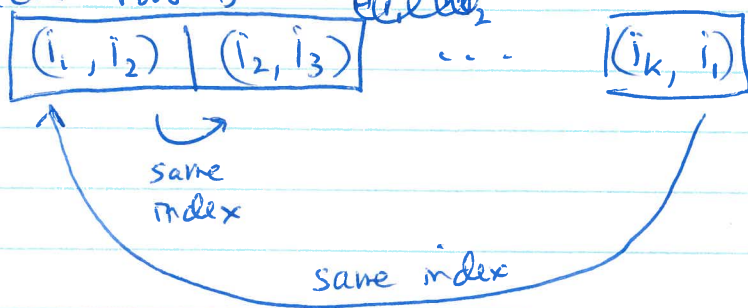 (i₁, i₂) | (i₂, i₃) .... (iₖ, i₁)
same
index
same index